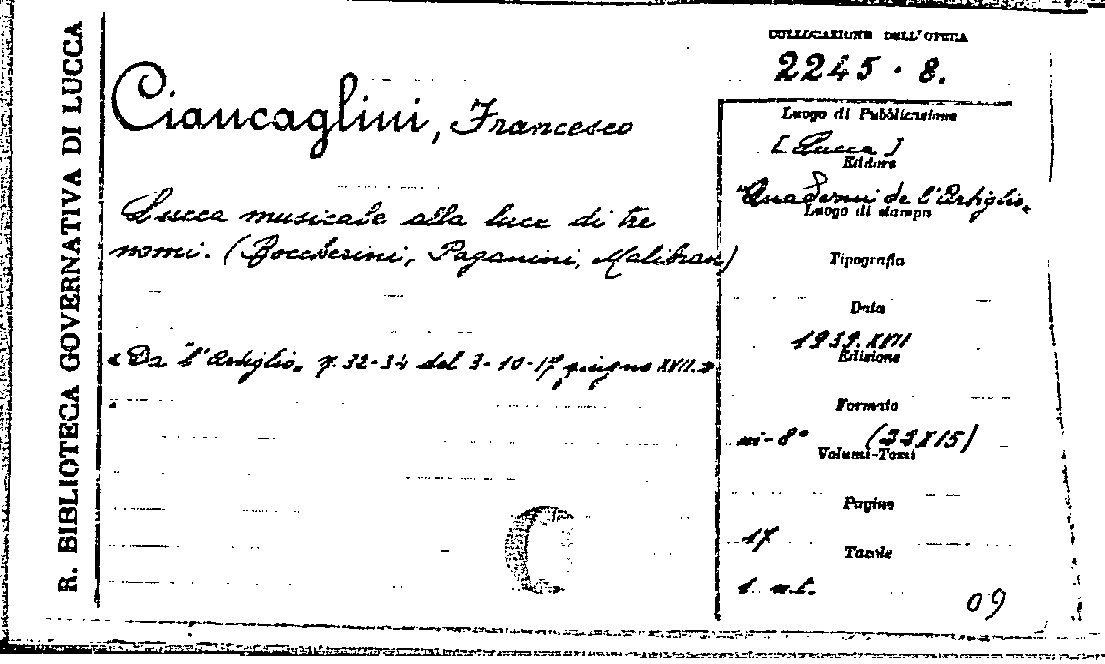 R. BIBLIOTECA GOVERNATIVA DI LUCCA
COLLOCAZIONE DELL'OPERA
2245 · 8.
Ciancaglini, Francesco
Lucca musicale alla luce di tre
nomi. (Boccherini, Paganini, Malibran)
« Da "l'Artiglio„ n. 32-34 del 3-10-17 giugno XVII.»
Luogo di Pubblicazione
[Lucca]
Editore
"Quaderni de l'Artiglio„
Luogo di stampa
Tipografia
Data
1939. XVII
Edizione
Formato
in-8° (22X15)
Volumi-Tomi
Pagine
17
Tavole
C
09